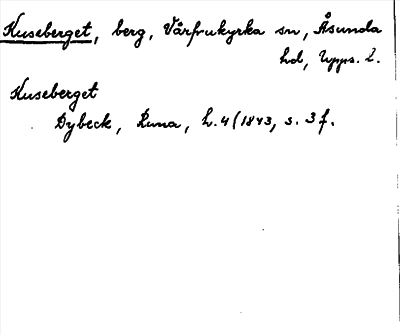 Kuseberget, berg, Vårfrukyrka sn, Åsunda
hd, Upps. l.
Kuseberget
Dybeck, Runa, h. 4 (1843, s. 3 f.